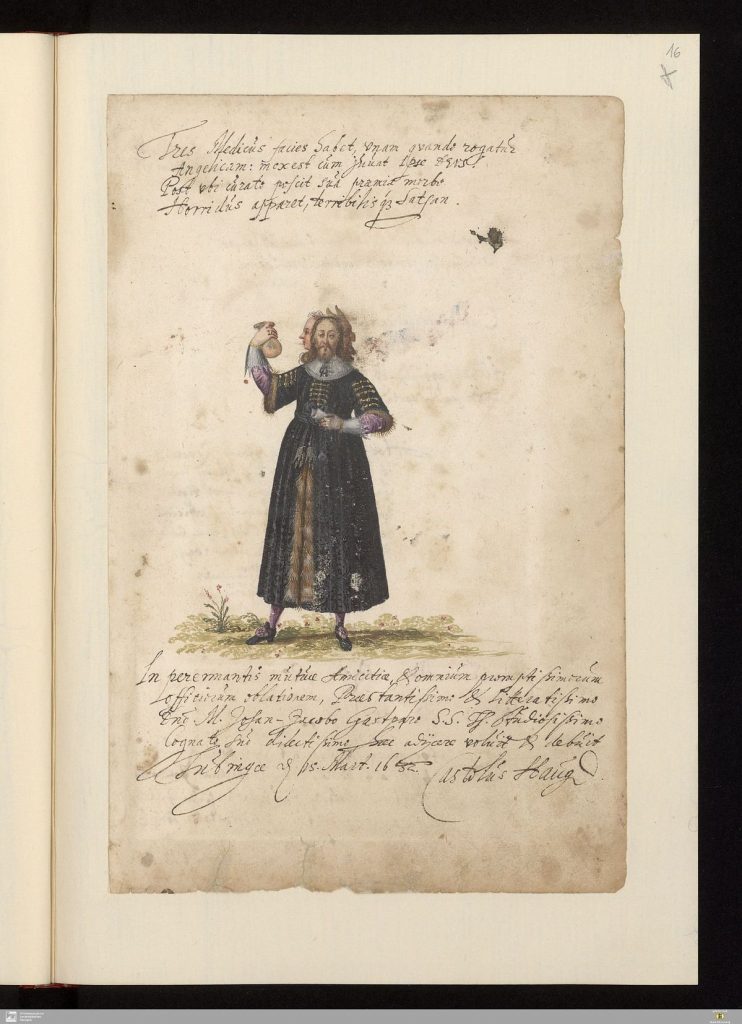 16
Tres Medicus facies habet, unam quando rogatur
Angelicam: mox est cum juvat ipse Deus.
Post ubi curato poscit sua praemia morbo
Horridus apparet, terribilisq3 Sathan.
In perennantis mutuae Amicitiae, & omnium promptissimorum
officiorum oblationem, Praestantissimo & Litteratissimo
Dno M. Johan-Jacobo S.S. Th. Studiosissimo
Cognato suo dilectissimo haec adijcere voluit & debuit
Tubingae Mart. 16
Haug